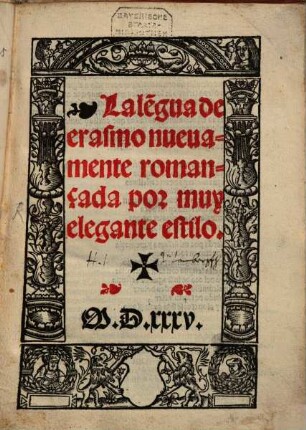 BAYERISCHE
STAATS-
BIBLIOTHEK
La lēgua de
erasmo nueua-
mente roman-
çada por muy
elegante estilo.
M.D.xxxv.